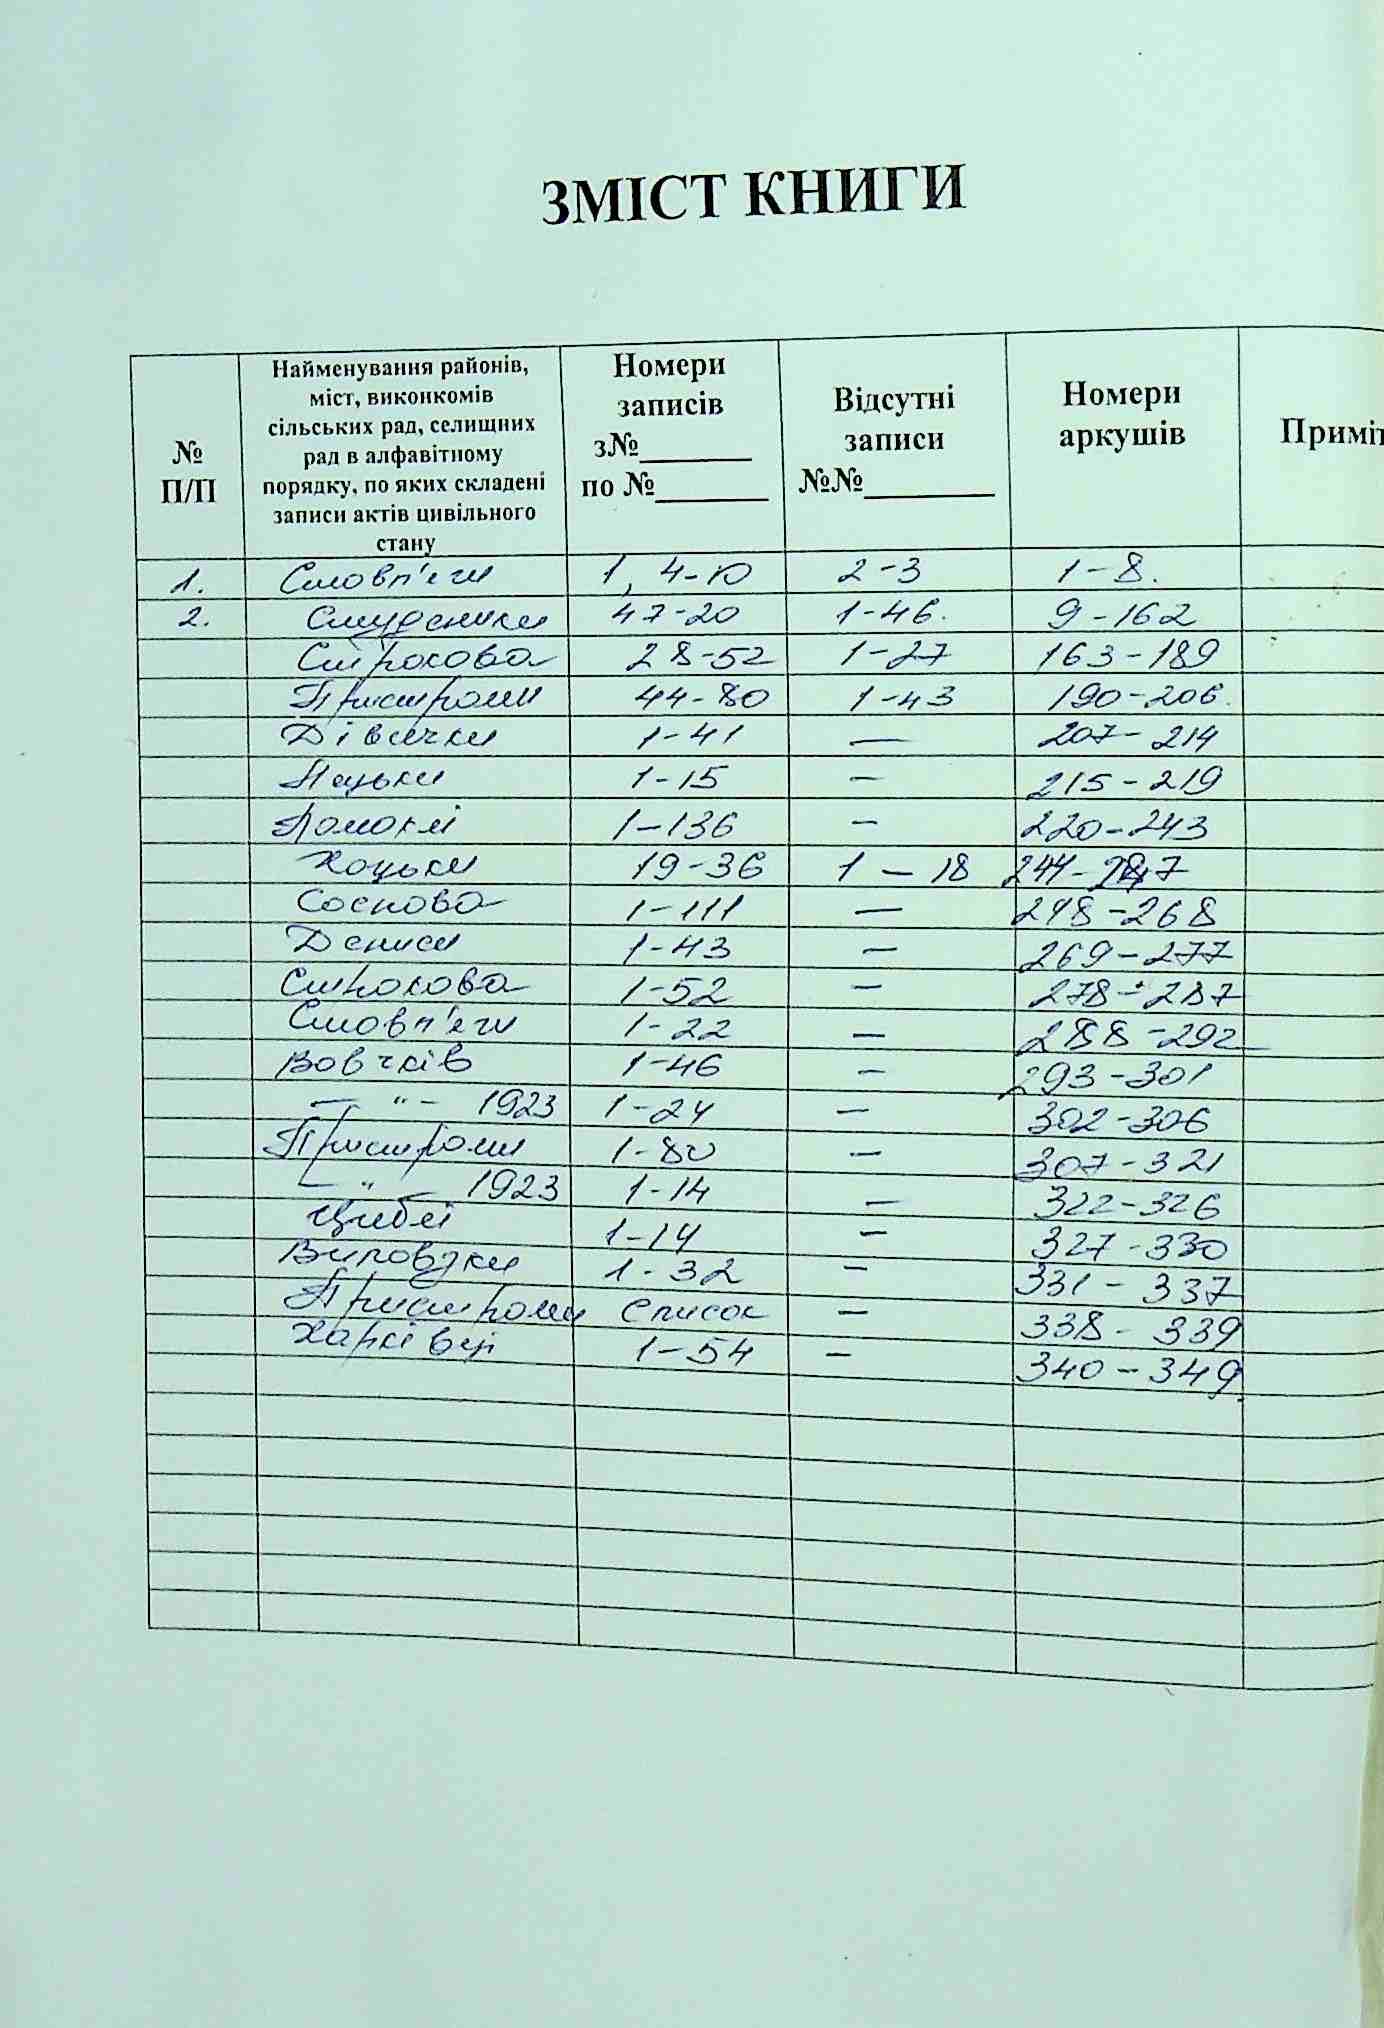 ЗМІСТ КНИГИ
№ П/П
Найменування районів, міст, виконкомів сільських рад, селищних рад в алфавітному порядку, по яких складені записи актів цивільного стану
Номери записів з№_______ по №_______
Відсутні записи №№________
Номери аркушів
Приміт
1. Стовп'яги 1, 4-10 2-3 1-8.
2. Студеники 47-20 1-46. 9-162
Строкова 28-52 1-27 163-189
Пристроми 44-80 1-43 190-206.
Дівички 1-41 — 207-214
Пацьки 1-15 — 215-219
Помоклі 1-136 — 220-243
Хоцьки 19-36 1-18 244-247
Соснова 1-111 — 248-268
Дениси 1-43 — 269-277
Строкова 1-52 — 278-287
Стовп'яги 1-22 — 288-292
Вовчків 1-46 — 293-301
— " — 1923 1-24 — 302-306
Пристроми 1-80 — 307-321
— " — 1923 1-14 — 322-326
Циблі 1-14 — 327-330
Виповзки 1-32 — 331-337
Пристроми список — 338-339
Харківці 1-54 — 340-349.